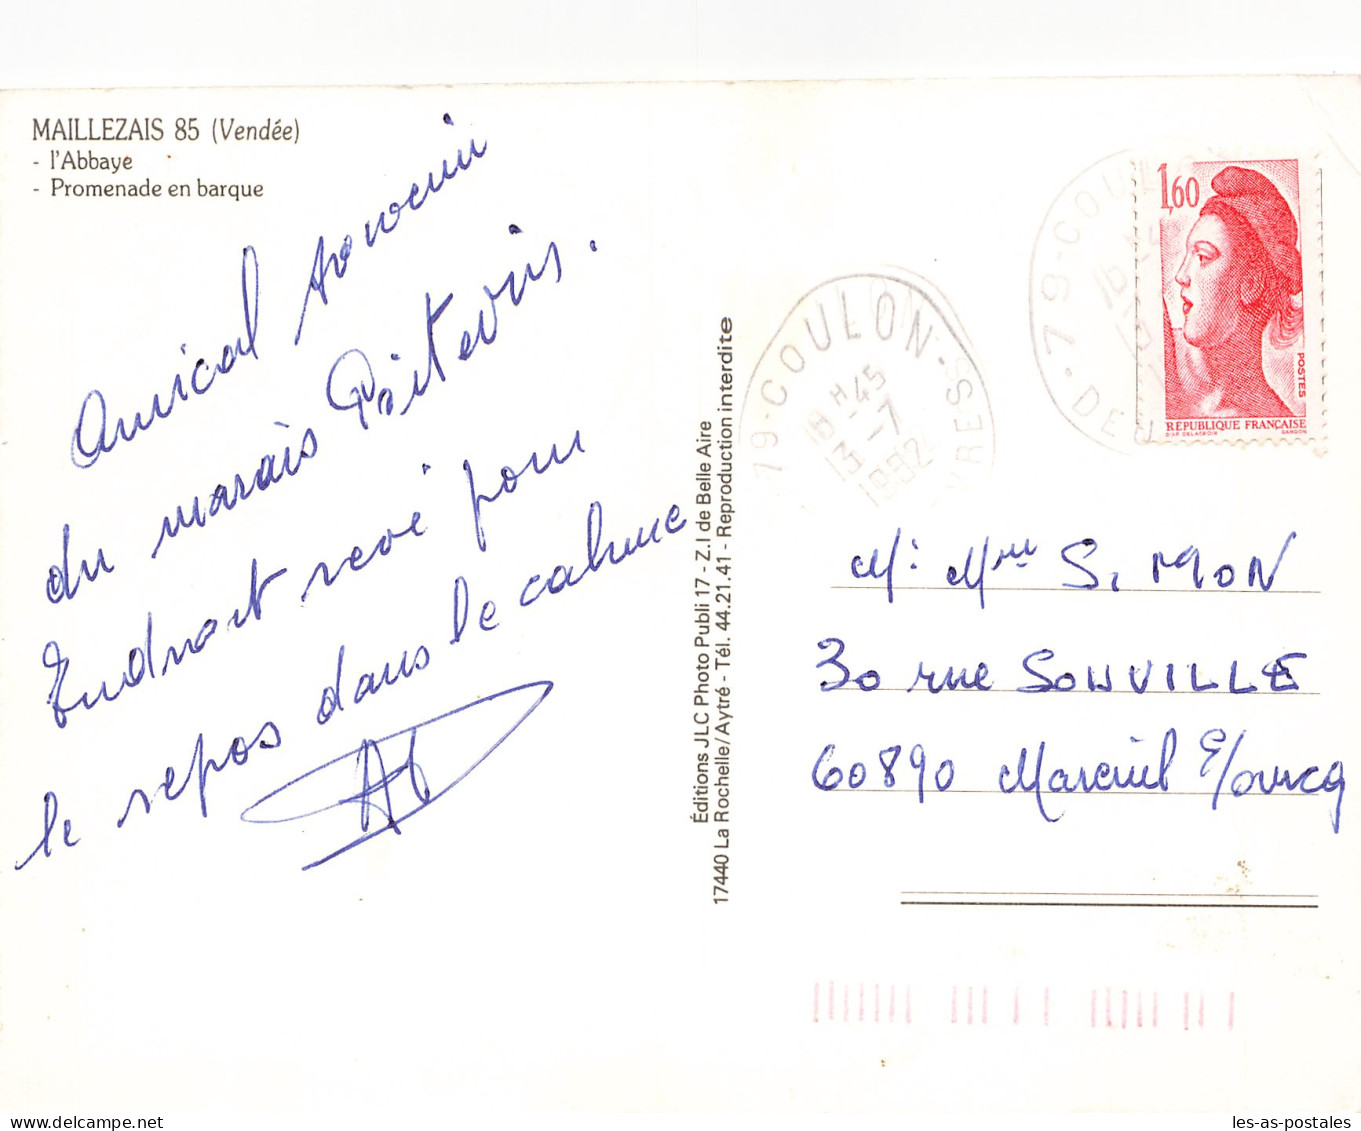 MAILLEZAIS 85 (Vendée)
- l'Abbaye
- Promenade en barque
Amical souvenir
du marais Poitevin.
Endroit revé pour
le repos dans le calme
Éditions JLC Photo Publi 17 - Z.I de Belle Aire
17440 La Rochelle/Aytré - Tél. 44.21.41 - Reproduction interdite
79-COULON-
SEVRES
18 H 45
13 -7
1982
79-COULON
DEUX
1,60
POSTES
REPUBLIQUE FRANÇAISE
D'AP. DELACROIX GANDON
Mr Mme SIMON
30 rue SONVILLE
60890 Mareuil s/ourcq
les-as-postales